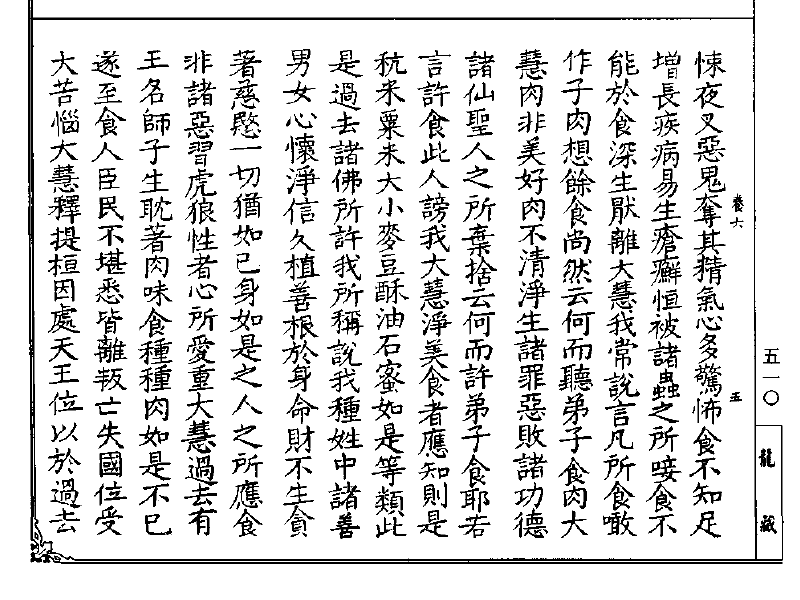 悚夜叉惡鬼奪其精氣心多驚怖食不知足
增長疾病易生瘡癬恒被諸蟲之所唼食不
能於食深生猒離大慧我常說言凡所食噉
作子肉想餘食尚然云何而聽弟子食肉大
慧肉非美好肉不清淨生諸罪惡敗諸功德
諸仙聖人之所棄捨云何而許弟子食耶若
言許食此人謗我大慧淨美食者應知則是
秔米粟米大小麥豆酥油石蜜如是等類此
是過去諸佛所許我所稱說我種姓中諸善
男女心懷淨信久植善根於身命財不生貪
著慈愍一切猶如已身如是之人之所應食
非諸惡習虎狼性者心所愛重大慧過去有
王名師子生耽著肉味食種種肉如是不已
遂至食人臣民不堪悉皆離叛亡失國位受
大苦惱大慧釋提桓因處天王位以於過去
卷六
五
五一〇
龍藏